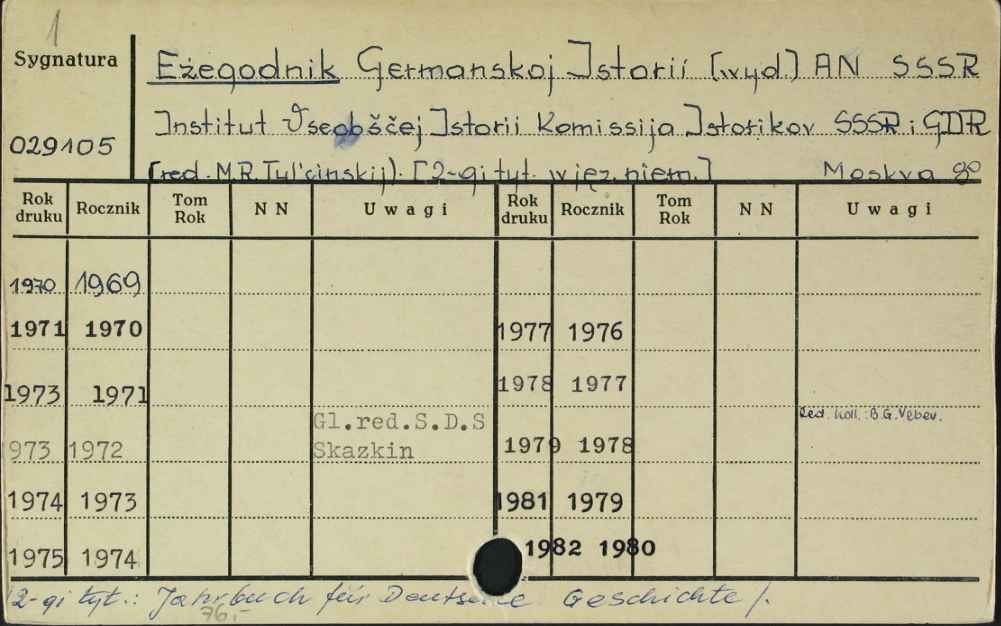 1
Sygnatura
Eżegodnik Germanskoj Istorii [wyd.] AN SSSR
Institut Vseobščej Istorii Komissija Istorikov SSSR i GDR
029105
[red. M.R. Tul'cinskij]. [2-gi tyt. w jęz. niem.] Moskva 8°
Rok druku Rocznik Tom Rok NN Uwagi Rok druku Rocznik Tom Rok NN Uwagi
1970 1969
1971 1970 1977 1976
1973 1971 1978 1977
Gl.red.S.D.S Red. koll.: B.G.
973 1972 Skazkin 1979 1978
1974 1973 1981 1979
1975 1974 1982 1980
/2-gi tyt.: Jahrbuch für Deutsche Geschichte/.
76.-